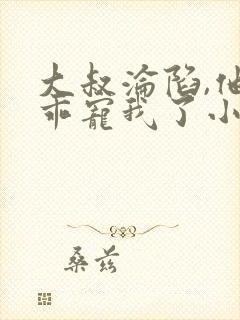 大叔淪陷,他
乖寵我了小
桑茲